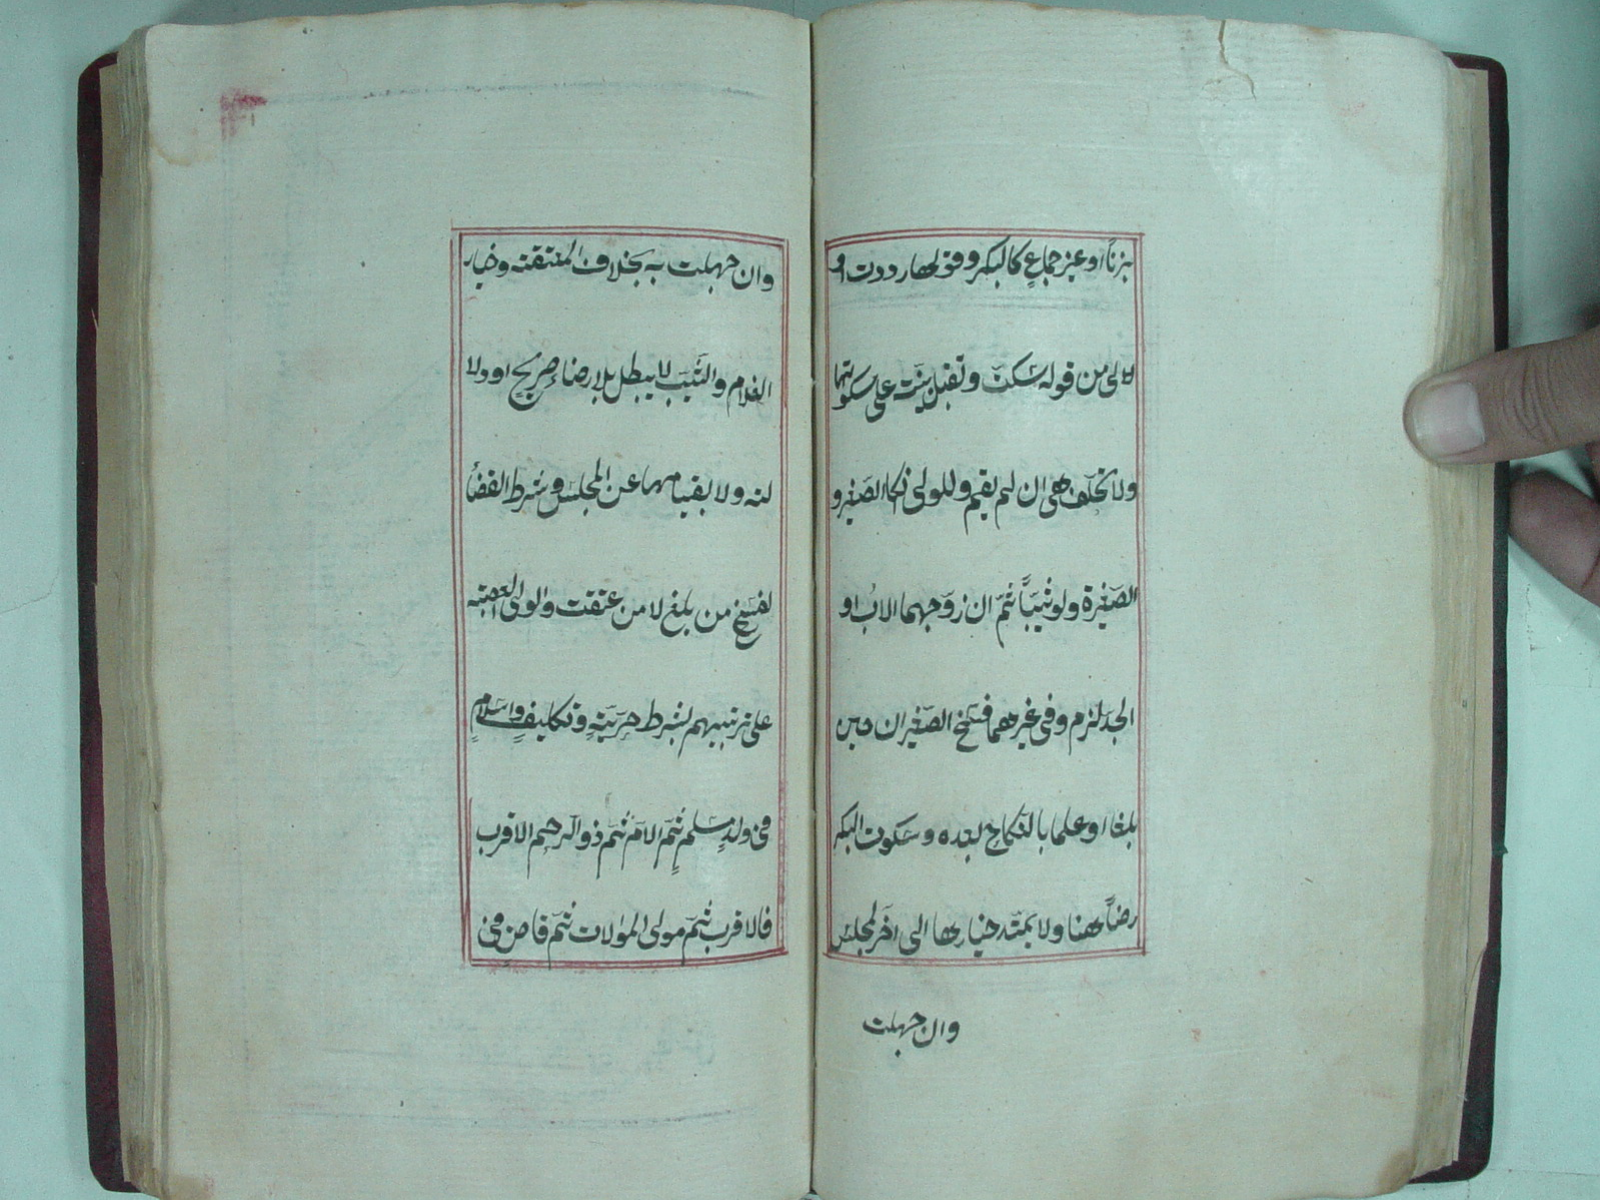 بزناً او غير جماع كالبكر وقولها رددت او
لالى من قوله سكتّ وتقبل بيّنته على سكوتها
ولا تحلّف هى ان لم يقم وللولى نكاا الصّغير و
الصّغيرة ولو ثيّباً ثمّ ان زوّجهما الابُ او
الجدّ لزم وفى غيرهما فسّخ الصّغيران حين
بلغا او علما بالنكاحِ بعده وسكوت البكر
رضاً ههنا ولا يمتدّ خيارها الى اخر المجلس
وان جهلت
وان جهلت به بخلاف المعتقته وخيار
الغلام والثيّب لا يبطل بلا رضاء صريح او دلا
لته ولا بقيامهما عن المجلس وشرط القضأ
لفسخ من بلغ لا من عتقت والولى العصبته
على ترتيبهم بشرط حرّيّةٍ وتكليفٍ واسلامٍ
فى ولدٍ مسلمٍ ثمّ الامّ ثمّ ذو الرحم الاقرب
فالاقرب ثمّ مولى الموٰلات ثمّ قاضٍ فى